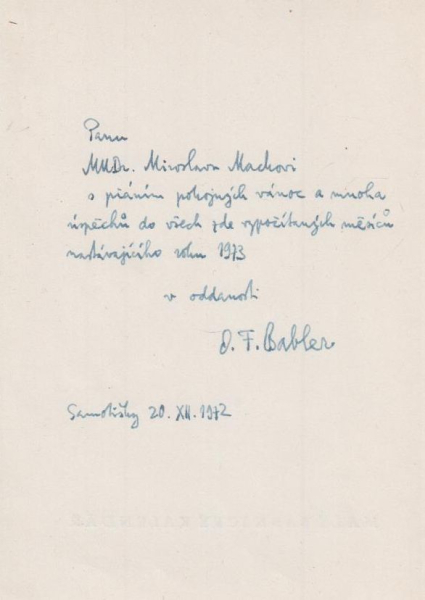 Panu
MUDr. Miroslavu Machovi
s přáním pokojných vánoc a mnoha
úspěchů do všech zde vypočítaných měsíců
nastávajícího roku 1973
v oddanosti
O. F. Babler
Samotišky 20. XII. 1972